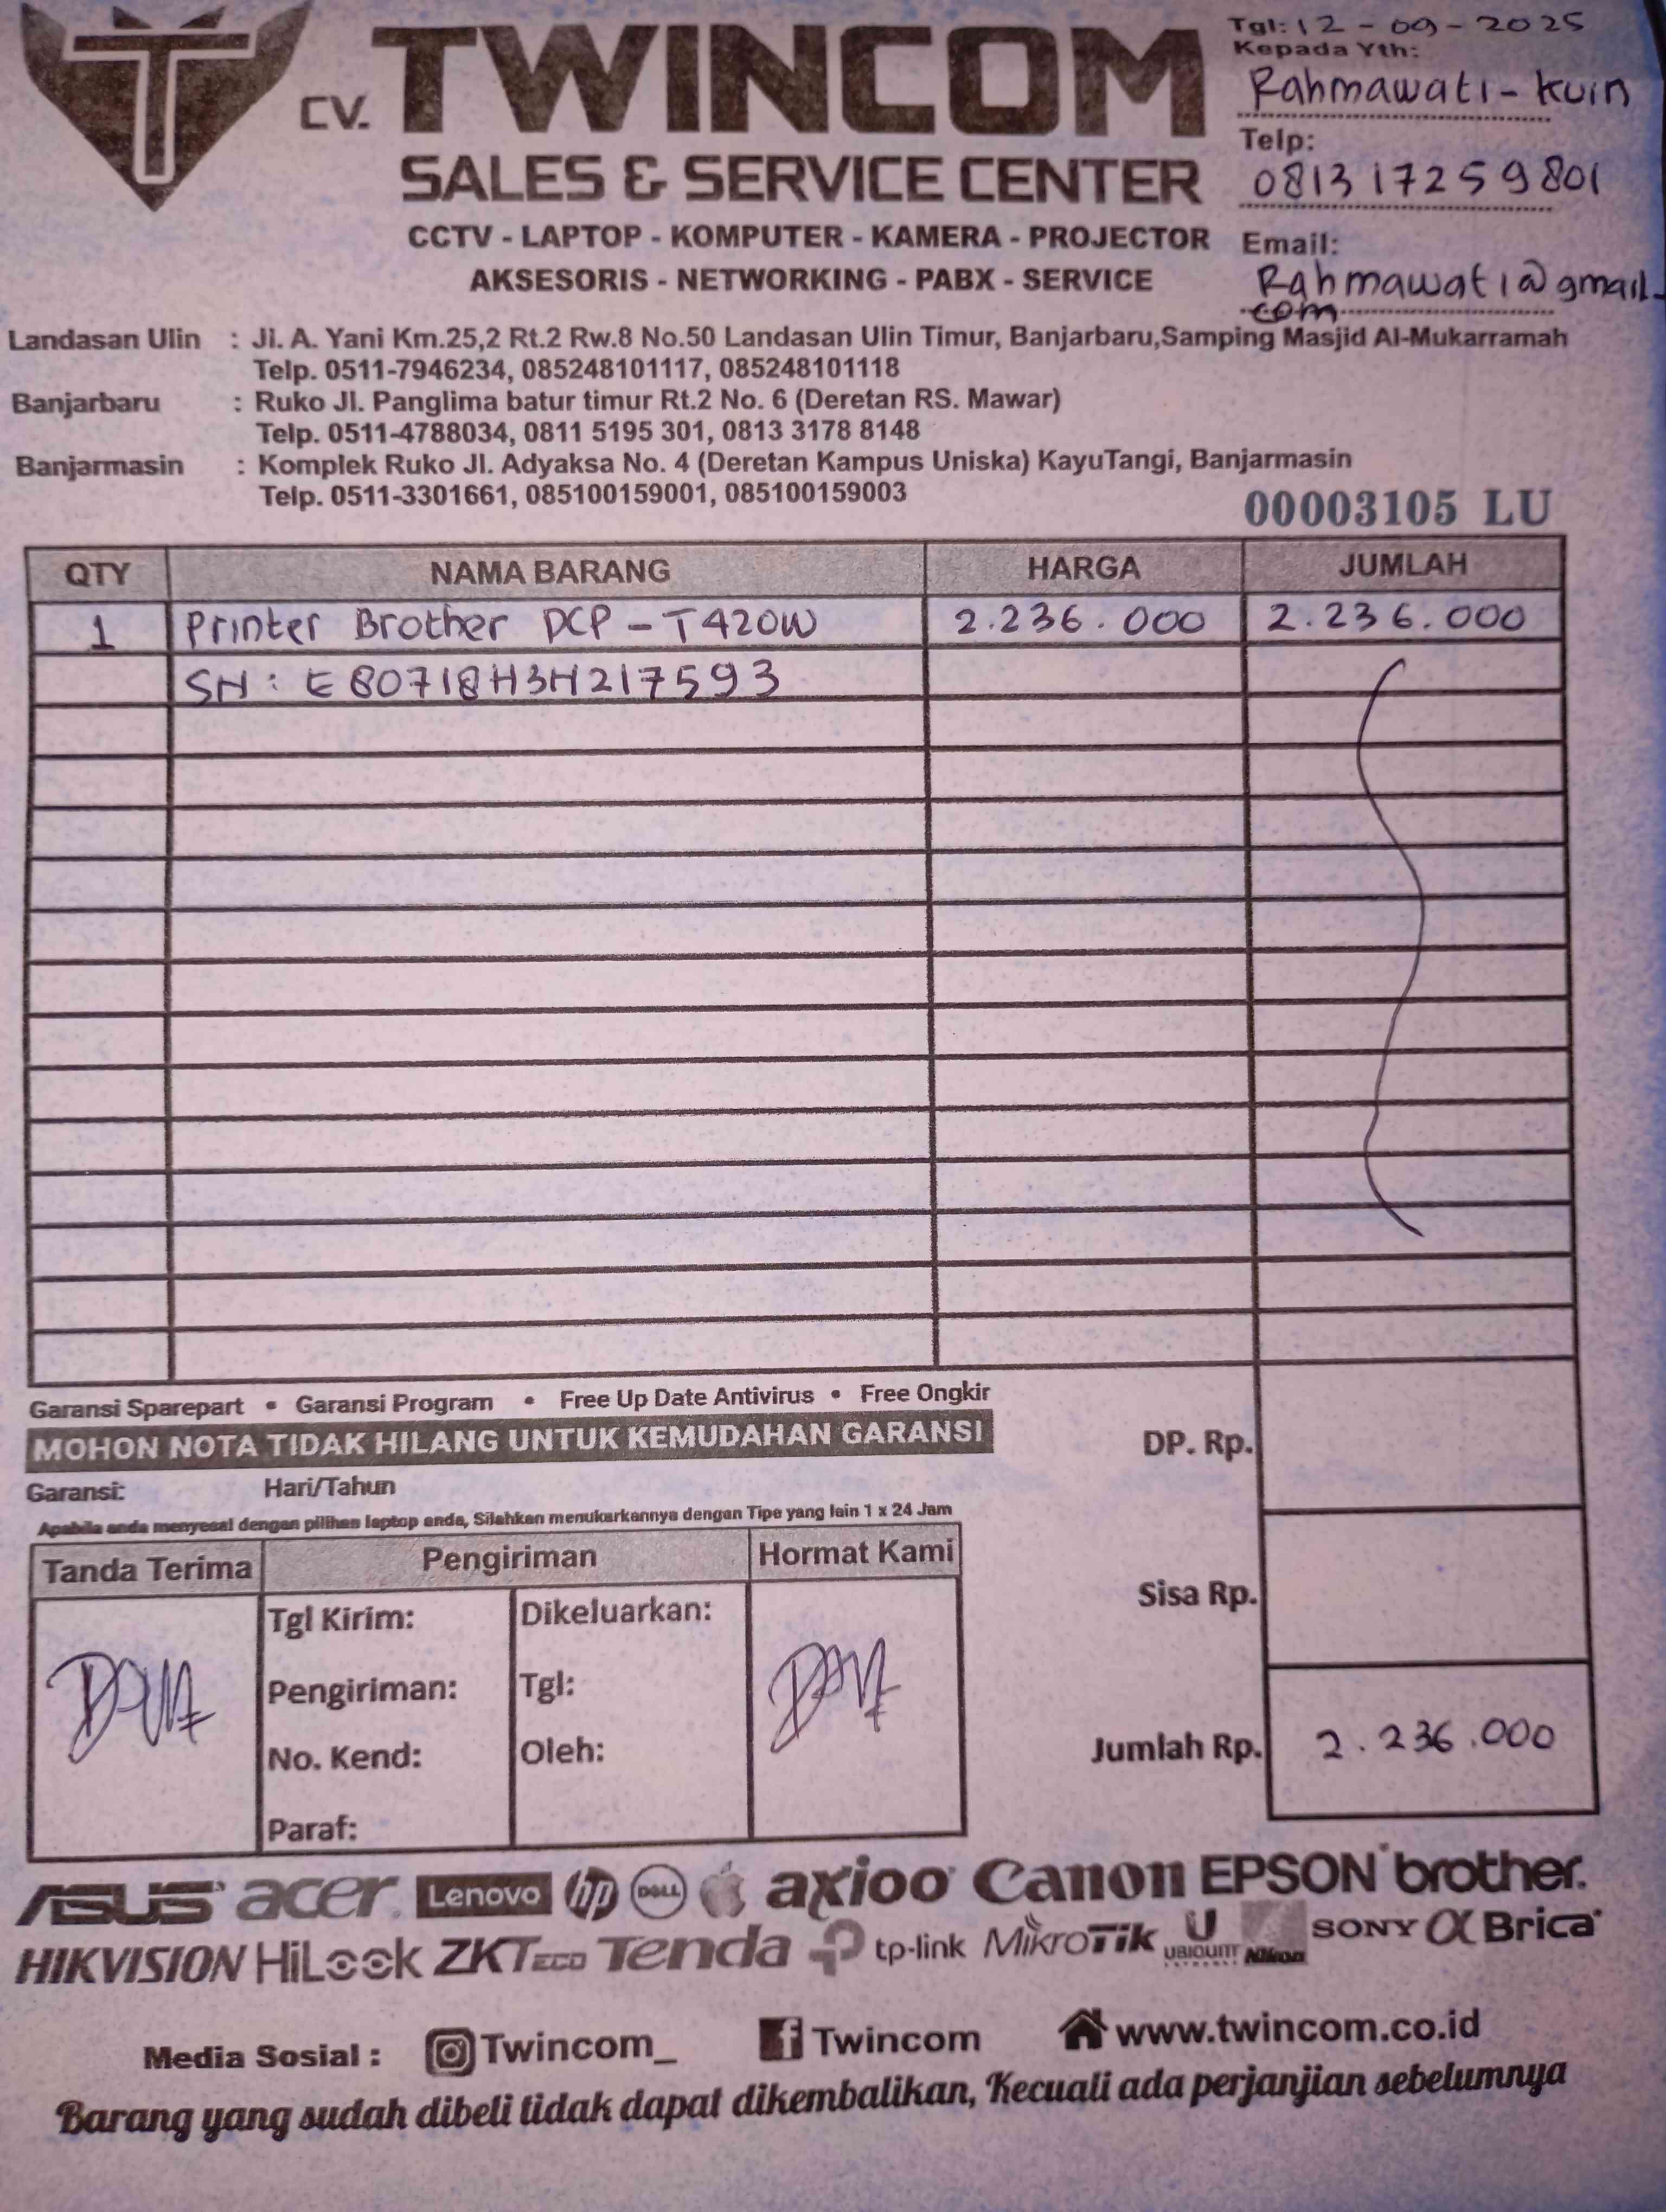 Tgl: 12 - 09 - 2025
Kepada Yth:
Rahmawati - Kuin
Telp:
081317259801
Email:
Rahmawati@gmail.
com
CV. TWINCOM
SALES & SERVICE CENTER
CCTV - LAPTOP - KOMPUTER - KAMERA - PROJECTOR
AKSESORIS - NETWORKING - PABX - SERVICE
Landasan Ulin : Jl. A. Yani Km.25,2 Rt.2 Rw.8 No.50 Landasan Ulin Timur, Banjarbaru,Samping Masjid Al-Mukarramah
Telp. 0511-7946234, 085248101117, 085248101118
Banjarbaru : Ruko Jl. Panglima batur timur Rt.2 No. 6 (Deretan RS. Mawar)
Telp. 0511-4788034, 0811 5195 301, 0813 3178 8148
Banjarmasin : Komplek Ruko Jl. Adyaksa No. 4 (Deretan Kampus Uniska) KayuTangi, Banjarmasin
Telp. 0511-3301661, 085100159001, 085100159003
00003105 LU
QTY NAMA BARANG HARGA JUMLAH
1 Printer Brother DCP - T420W 2.236.000 2.236.000
SN : E80718H3H217593
Garansi Sparepart • Garansi Program • Free Up Date Antivirus • Free Ongkir
MOHON NOTA TIDAK HILANG UNTUK KEMUDAHAN GARANSI
Garansi: Hari/Tahun
Apabila anda menyesal dengan pilihan laptop anda, Silahkan menukarkannya dengan Tipe yang lain 1 x 24 Jam
DP. Rp.
Sisa Rp.
Jumlah Rp. 2.236.000
Tanda Terima Pengiriman Hormat Kami
Tgl Kirim: Dikeluarkan:
Pengiriman: Tgl:
No. Kend: Oleh:
Paraf:
ASUS acer Lenovo hp DELL axioo Canon EPSON brother.
HIKVISION HiLook ZKTECO Tenda tp-link MikroTik U UBIQUITI NETWORKS Nikon SONY α Brica
Media Sosial : Twincom_ Twincom www.twincom.co.id
Barang yang sudah dibeli tidak dapat dikembalikan, Kecuali ada perjanjian sebelumnya